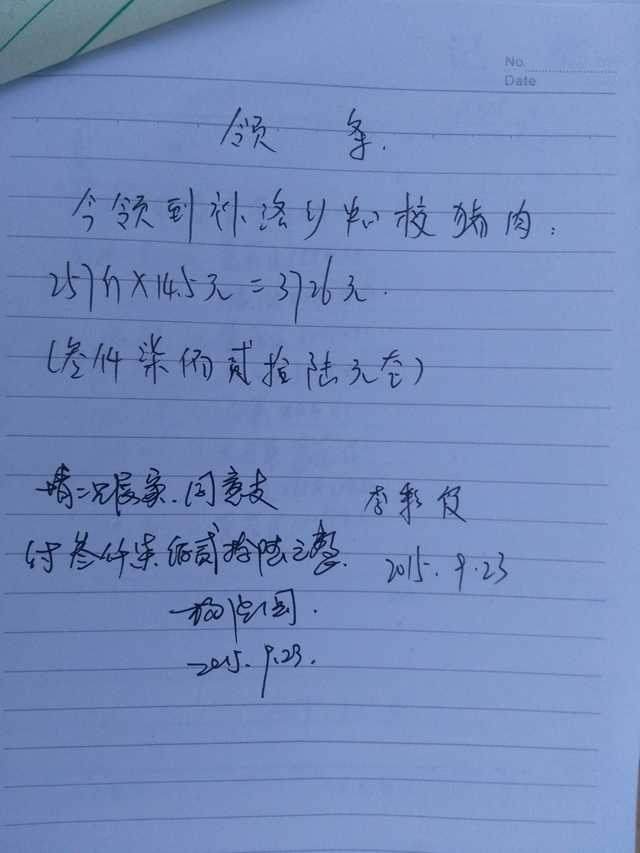 No.
Date
领 条.
今领到补洛乡中心校猪肉:
257斤×14.5元=3726元.
(叁仟柒佰贰拾陆元整)
情况属实.同意支
付叁仟柒佰贰拾陆元整.
李彩
2015.9.23
国.
2015.9.23.